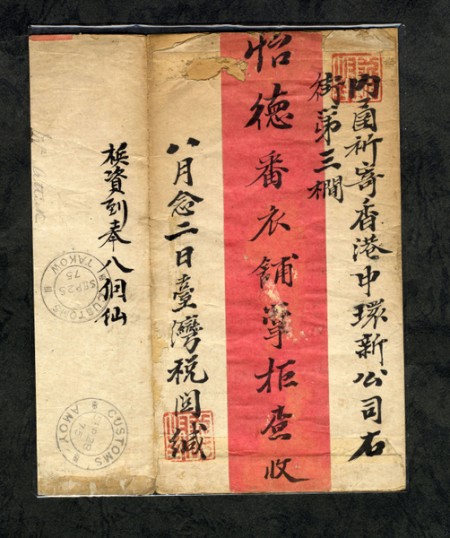 內函祈寄香港中環新公司石
街第三櫊
怡德番衣舖掌柜查收
八月念二日臺灣稅関緘
梹資到奉八個仙
CUSTOMS
SEP 25
75
TAKOW
CUSTOMS
75
AMOY